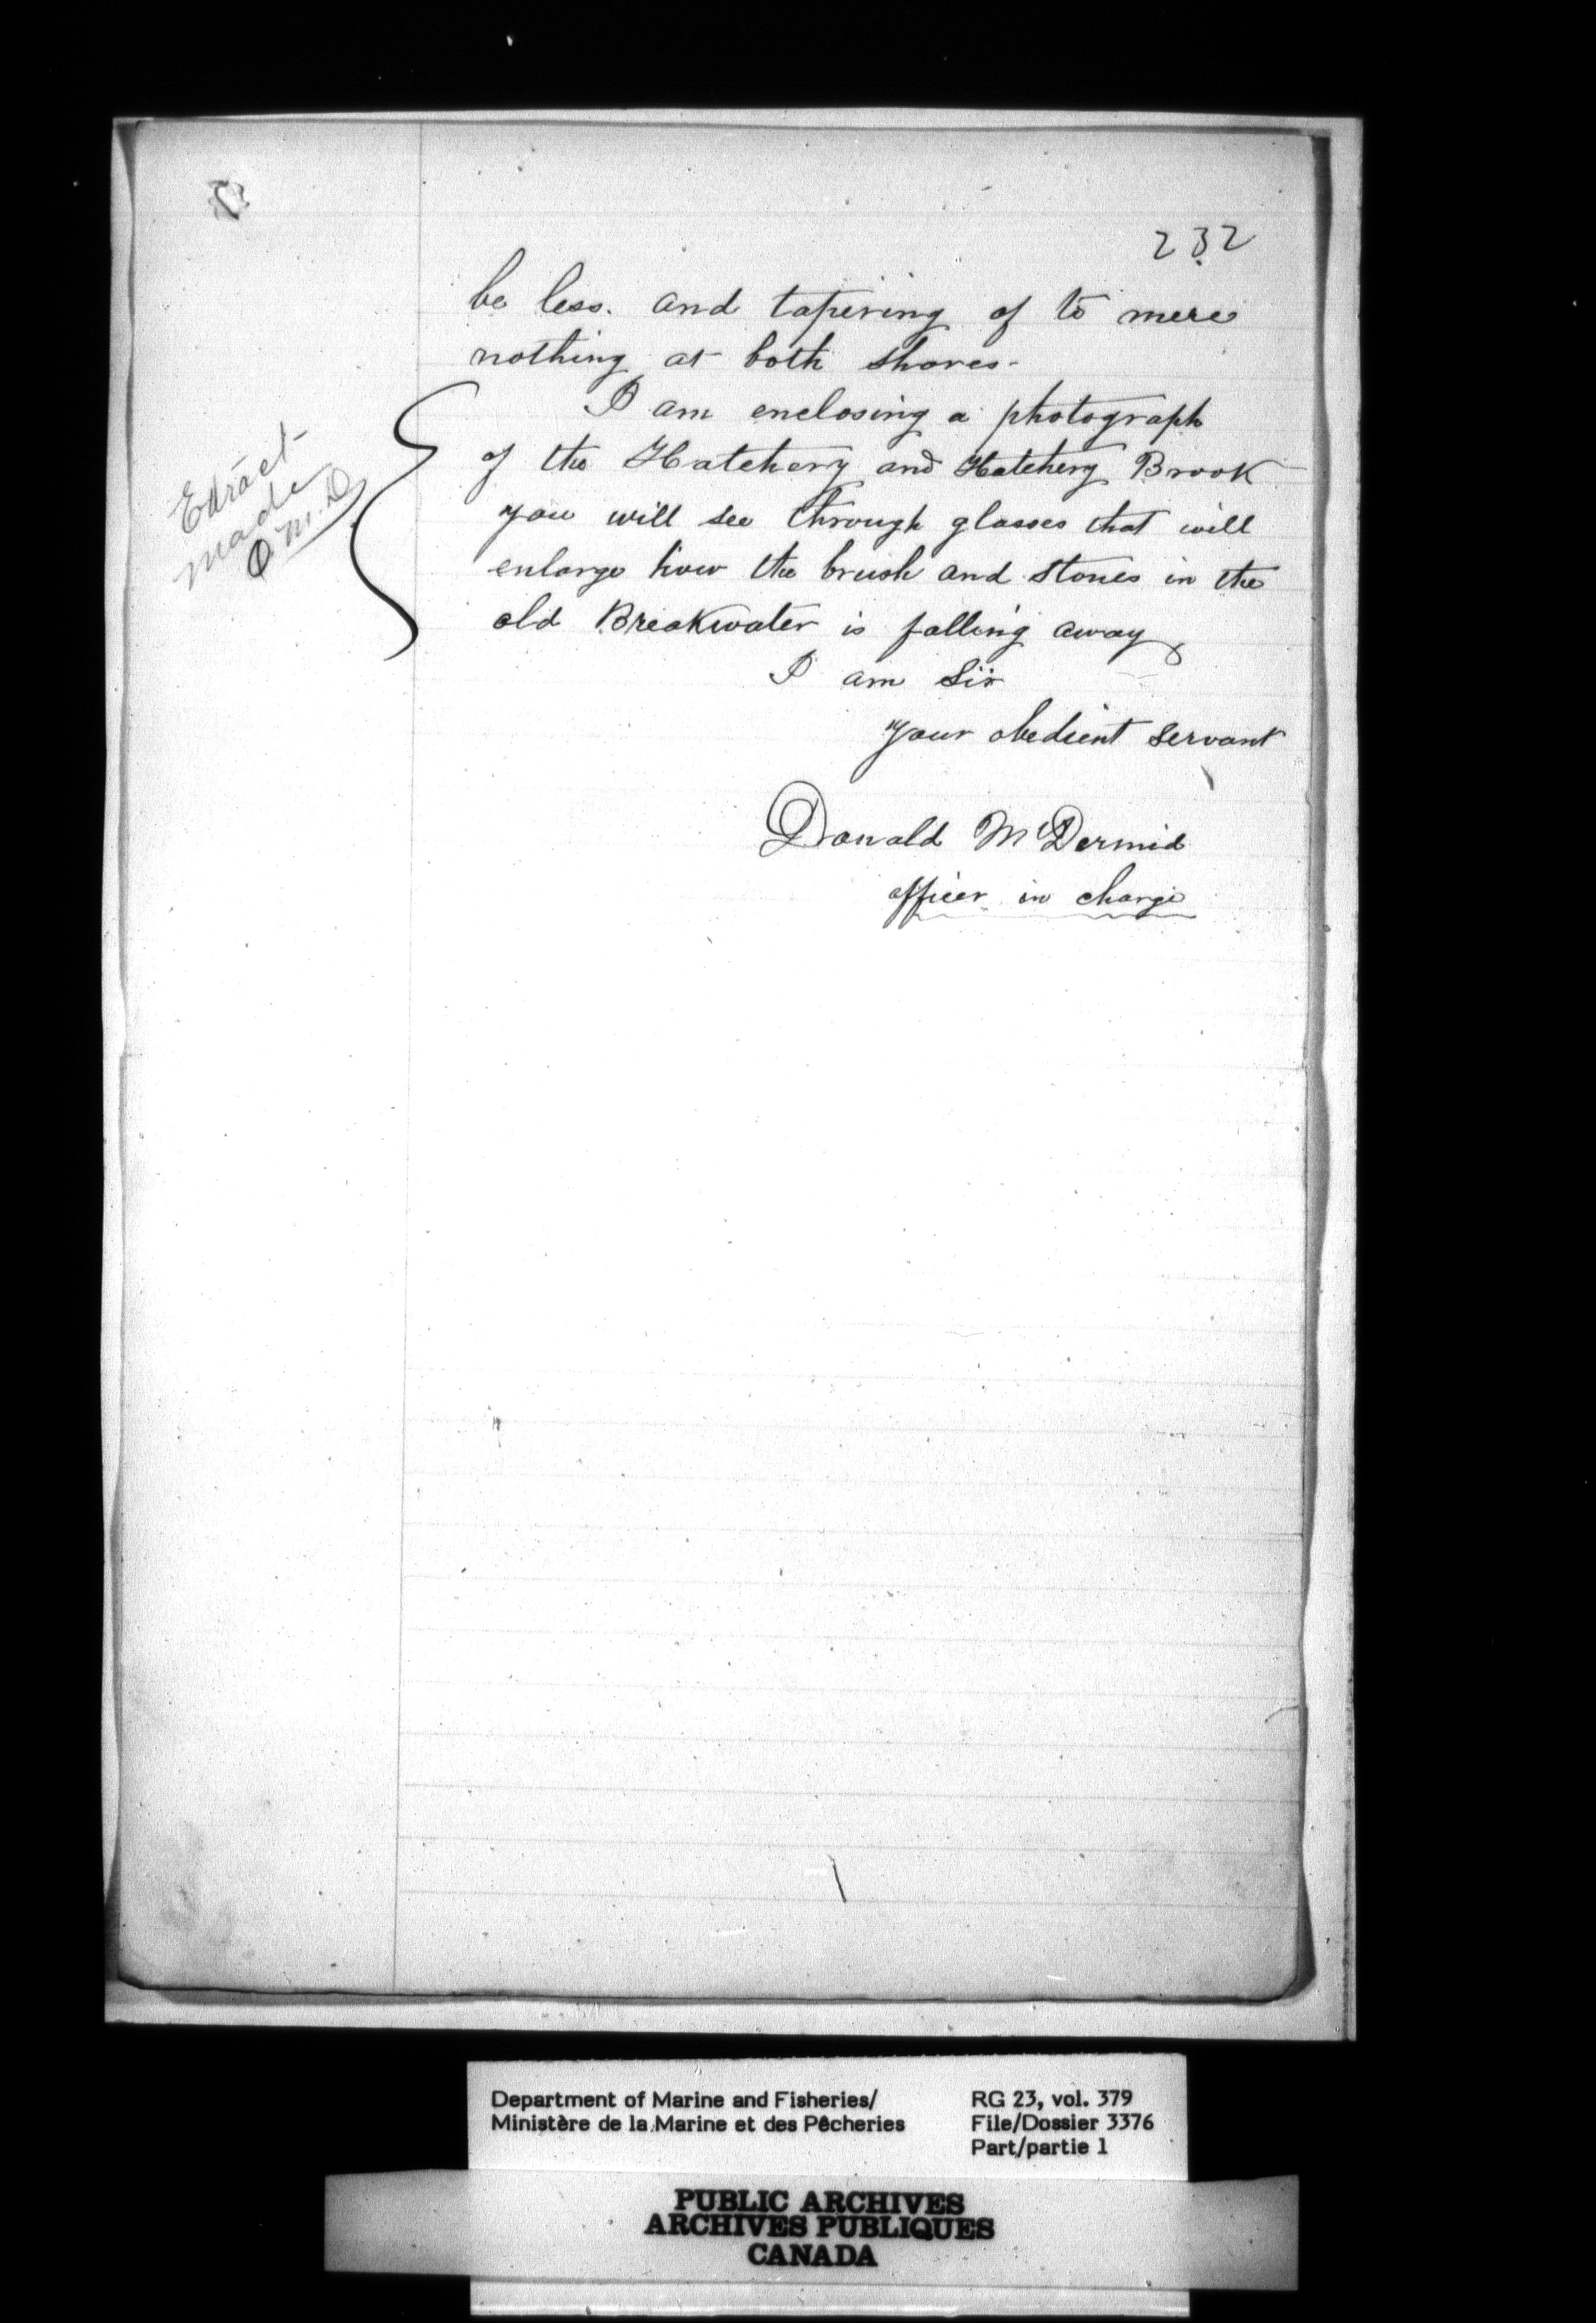 232
be less. and tapering of to mere
nothing at both shores-
I am enclosing a photograph
of the Hatchery and Hatchery Brook
you will see through glasses that will
enlarge how the brush and stones in the
old Breakwater is falling away
I am Sir
your obedient servant
Donald McDermid
officer in charge
Extract
made
Department of Marine and Fisheries/
Ministère de la Marine et des Pêcheries
RG 23, vol. 379
File/Dossier 3376
Part/partie 1
PUBLIC ARCHIVES
ARCHIVES PUBLIQUES
CANADA